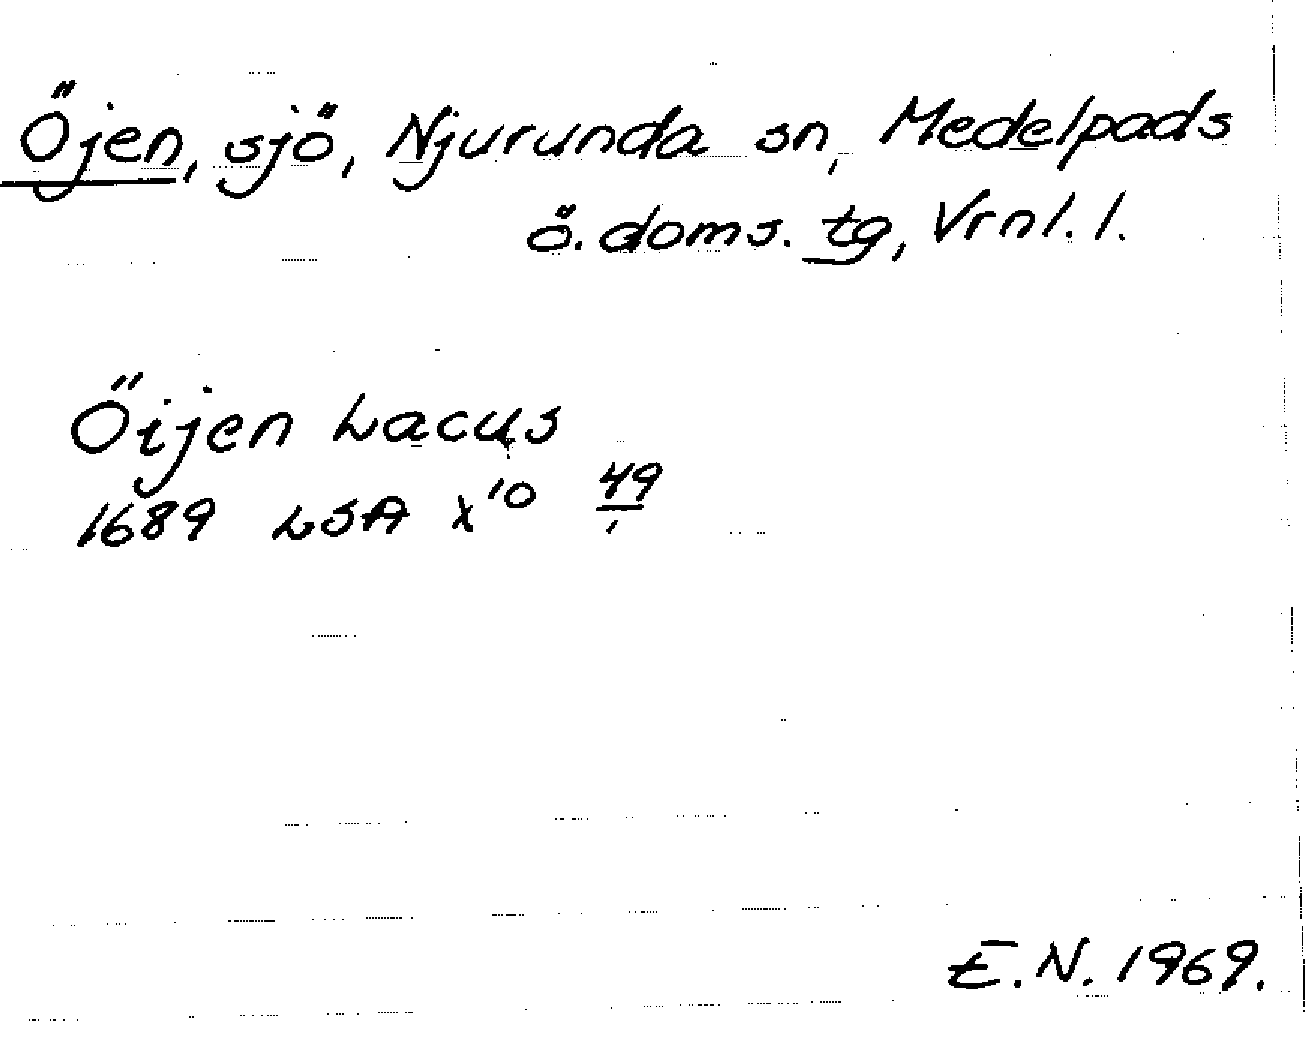 Öjen, sjö, Njurunda sn, Medelpads
ö. doms. tg, Vrnl. l.
Öijen Lacus
1689 LSA X¹⁰ 49/1
E.N. 1969.